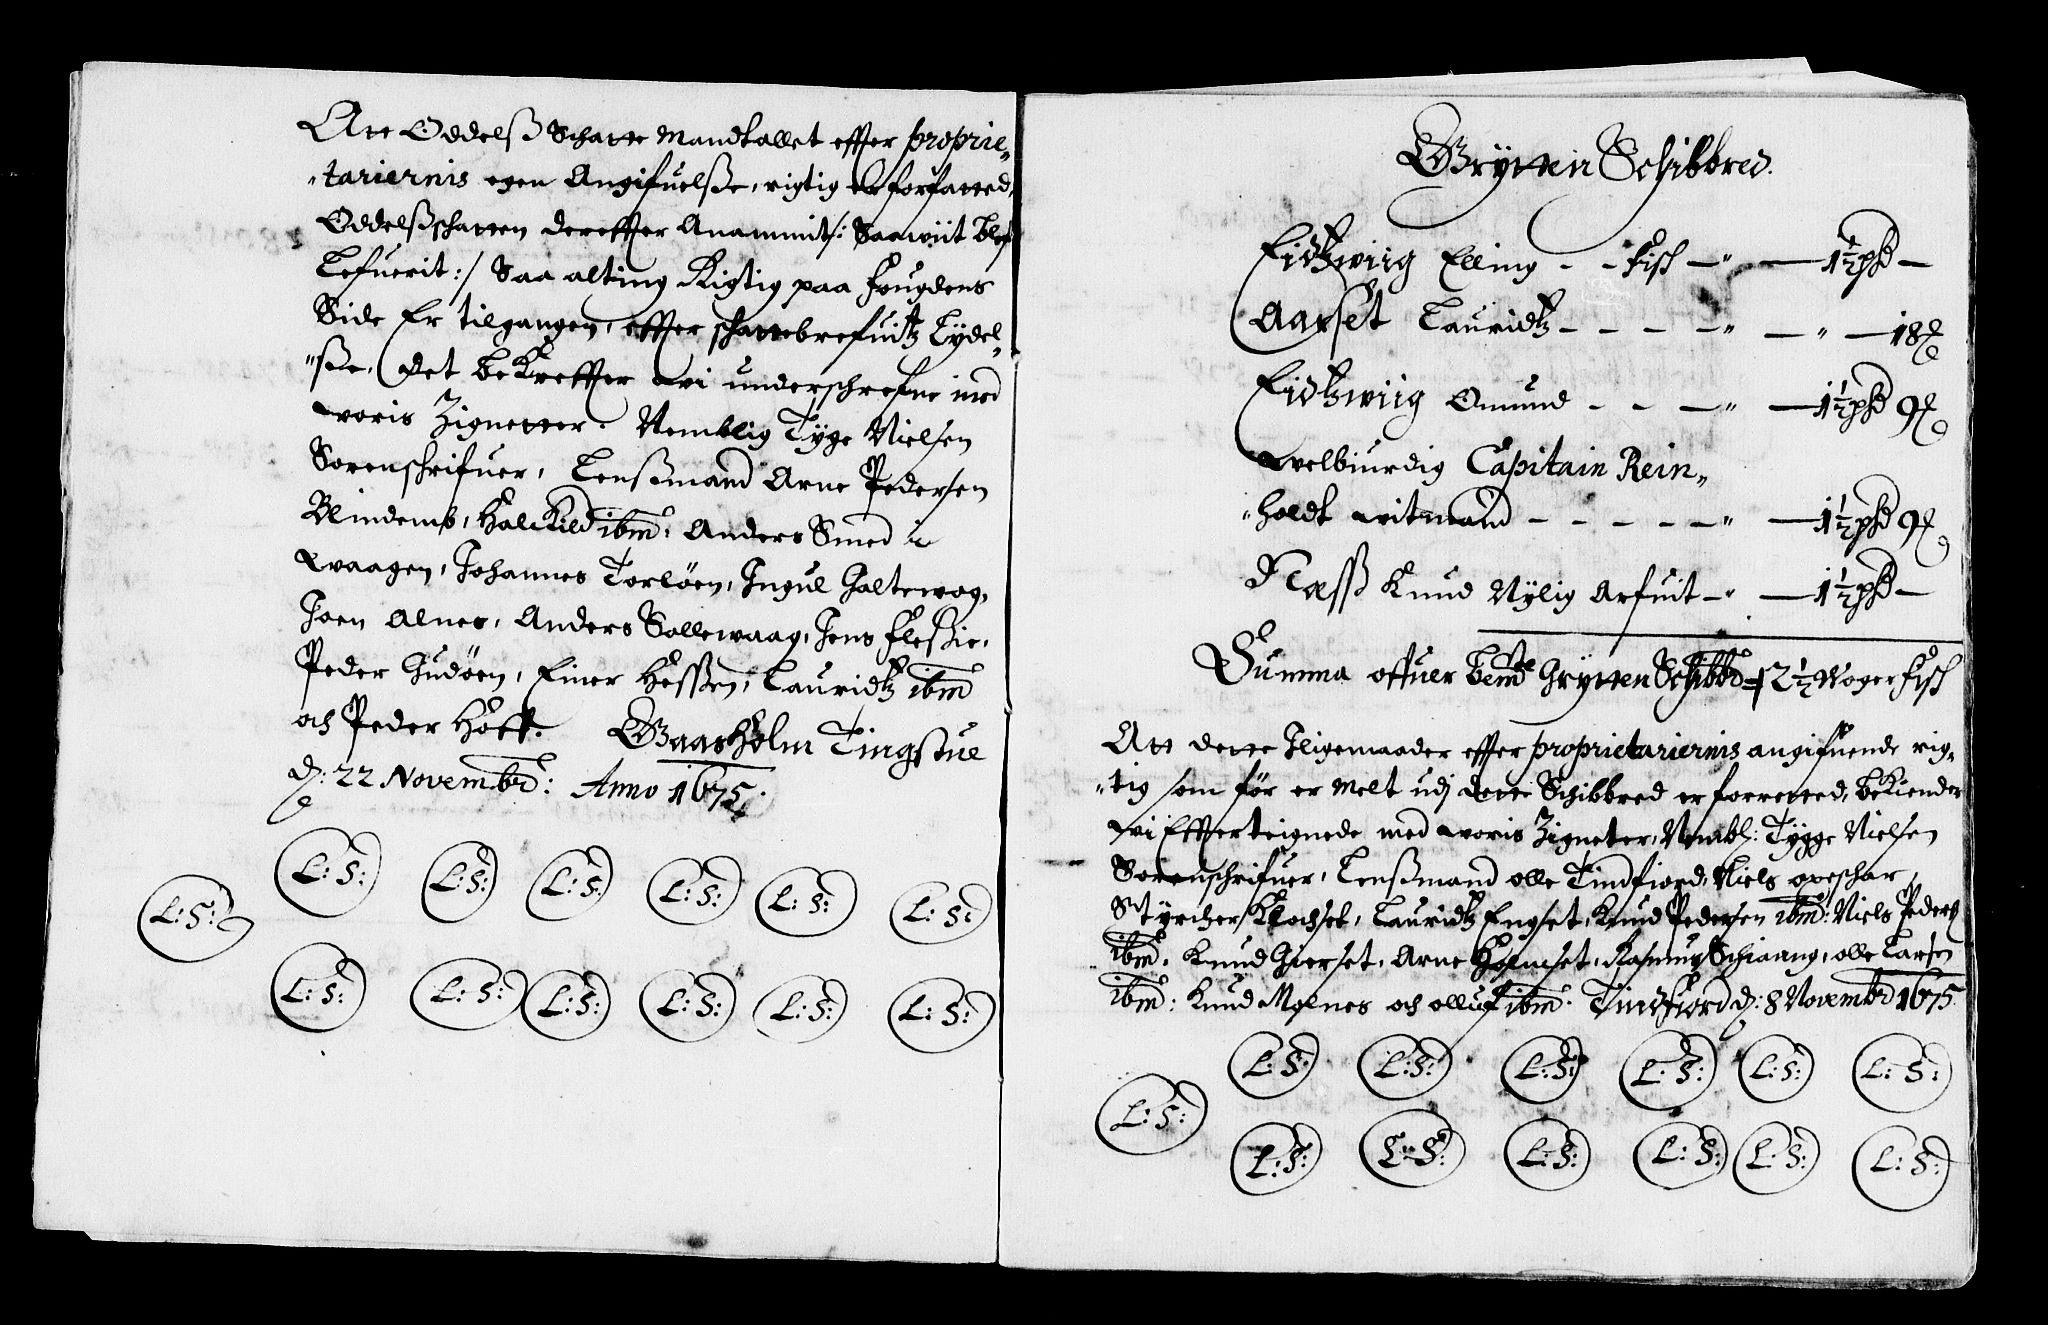 Att Oddelß Schatte Mandtallet effter proprie„
„tariernis egen Angifuelße, rigtig er forfatted,
Oddelßschatten dereffter Anammit /: Saawiit blef
Lefuerit :/ Saa alting Rigtig paa fougdens
Side Er tilgangen, effter schattebrefuitz Lydel„
„ße, det bekreffter wi underschrefne med
woris Zignetter. Nemblig Tyge Nielsen
Sorenschrifuer, Lenßmand Arne Pedersen
Blindemb, Halckild ibm: Anders Smed i
Waagen, Johannes Torløen, Ingul Galtewog,
Joen Alnes, Anders Sollewaag, Jens Fleßie,
Peder Gudøen, Einer Heßen, Lauridtz ibm
och Peder Hoff. Waasholm Tingstue
d: 22 Novembr: Anno 1675.
L: S: L: S: L: S: L: S: L: S: L: S:
L: S:
L: S: L: S: L: S: L: S: L: S: L: S:
Grytten Schibbred.
Eidtzwiig Elling - - Fisch - " - 1½ pd -
Aarset Lauridtz - - - - " - " - 18 
Eidtzwiig Omund - - - " - 1½ pd 9 
Welbiurdig Capitain Rein„
„holdt Witmand - - - - - " - 1½ pd 9 
Næss Knud Nylig Arfuit - " - 1½ pd -
Summa offuer bemt Grytten Schibbr = 2½ Woger Fisch
Att dette Iligemaader effter proprietariernis angifuende rig„
„tig som før er melt udj dette Schibbred er forretted, bekiender
wi Effterteignede med woris Zigneter, Nembl: Tygge Nielsen
Sorenschrifuer, Lenßmand olle Tindfiord, Niels
Styrcher Lauridtz Engset, Knud Pedersen ibm: Niels Peders
ibm: Knud Gierset, Arne Holmset, Rasmus Schiaang, olle Larsen
ibm: Knud Molnes och olluf ibm. Tindfiord d: 8 Novembr 1675
L: S: L: S: L: S: L: S: L: S: L: S:
L: S:
L: S: L: S: L: S: L: S: L: S: L: S: